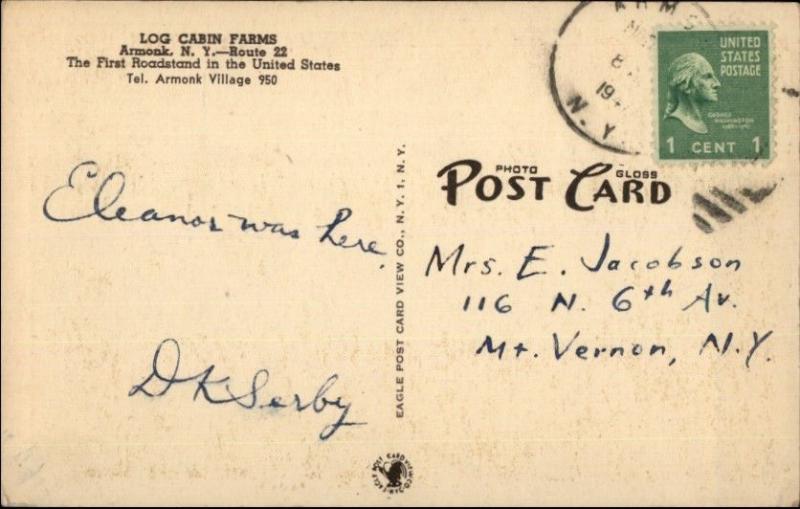 LOG CABIN FARMS
Armonk, N. Y.—Route 22
The First Roadstand in the United States
Tel. Armonk Village 950
Eleanor was here.
D K Serby
EAGLE POST CARD VIEW CO., N. Y. 1, N. Y.
N. Y.
UNITED
STATES
POSTAGE
GEORGE
WASHINGTON
1 CENT 1
PHOTO GLOSS
POST CARD
Mrs. E. Jacobson
116 N. 6th Av.
Mt. Vernon, N.Y.